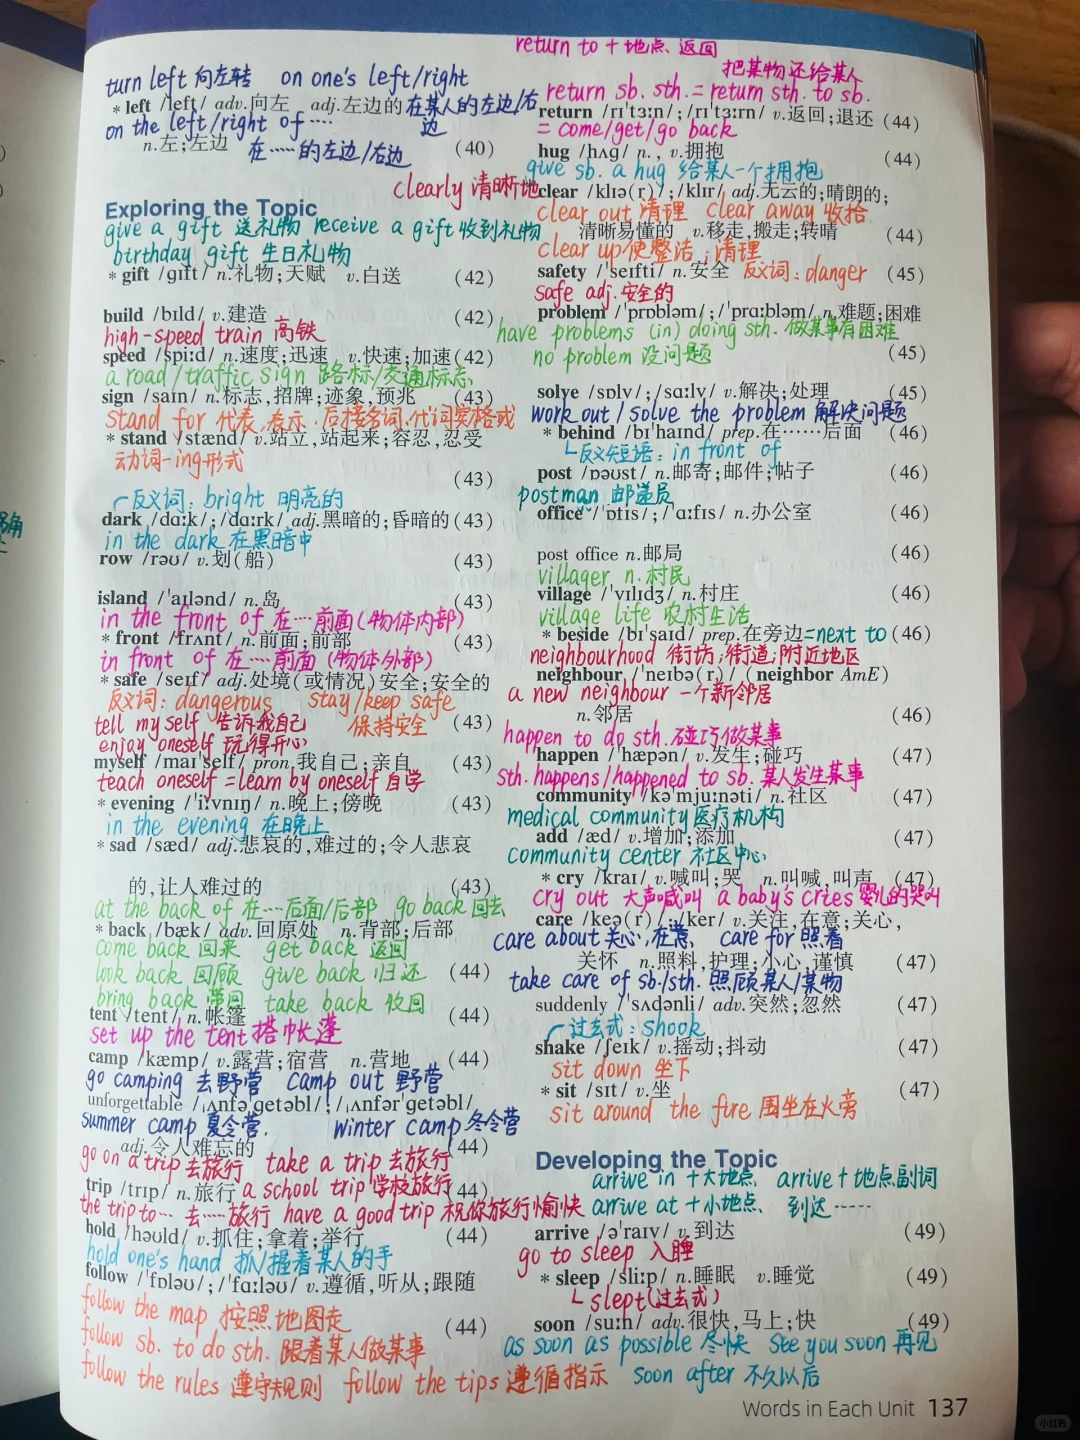 turn left 向左转 on one's left/right
* left /left/ adv.向左 adj.左边的 在某人的左边/右边
on the left/right of ····
n.左;左边 在·····的左边/右边 (40)
clearly 清晰地
Exploring the Topic
give a gift 送礼物 receive a gift 收到礼物
birthday gift 生日礼物
* gift /ɡɪft/ n.礼物;天赋 v.白送 (42)
build /bɪld/ v.建造 (42)
high-speed train 高铁
speed /spiːd/ n.速度;迅速 v.快速;加速 (42)
a road/traffic sign 路标/交通标志
sign /saɪn/ n.标志,招牌;迹象,预兆 (43)
stand for 代表,表示,后接名词,代词宾格或
* stand /stænd/ v.站立,站起来;容忍,忍受
动词-ing形式
(43)
反义词: bright 明亮的
dark /dɑːk/;/dɑːrk/ adj.黑暗的;昏暗的 (43)
in the dark 在黑暗中
row /rəʊ/ v.划(船) (43)
island /ˈaɪlənd/ n.岛 (43)
in the front of 在····前面(物体内部)
* front /frʌnt/ n.前面;前部 (43)
in front of 在····前面(物体外部)
* safe /seɪf/ adj.处境(或情况)安全;安全的
反义词: dangerous stay/keep safe
tell myself 告诉我自己 保持安全 (43)
enjoy oneself 玩得开心
myself /maɪˈself/ pron.我自己;亲自 (43)
teach oneself = learn by oneself 自学
* evening /ˈiːvnɪŋ/ n.晚上;傍晚 (43)
in the evening 在晚上
* sad /sæd/ adj.悲哀的,难过的;令人悲哀
的,让人难过的 (43)
at the back of 在····后面/后部 go back 回去
* back /bæk/ adv.回原处 n.背部;后部
come back 回来 get back 返回
look back 回顾 give back 归还 (44)
bring back 带回 take back 收回
tent /tent/ n.帐篷 (44)
set up the tent 搭帐篷
camp /kæmp/ v.露营;宿营 n.营地 (44)
go camping 去野营 camp out 野营
unforgettable /ˌʌnfəˈɡetəbl/;/ˌʌnfərˈɡetəbl/
summer camp 夏令营, winter camp 冬令营
adj.令人难忘的 (44)
go on a trip 去旅行 take a trip 去旅行
trip /trɪp/ n.旅行 a school trip 学校旅行 (44)
the trip to··· 去····旅行 have a good trip 祝你旅行愉快
hold /həʊld/ v.抓住;拿着;举行 (44)
hold one's hand 抓/握着某人的手
follow /ˈfɒləʊ/;/ˈfɑːləʊ/ v.遵循,听从;跟随
follow the map 按照地图走 (44)
follow sb. to do sth. 跟着某人做某事
follow the rules 遵守规则 follow the tips 遵循指示
return to + 地点 返回
把某物还给某人
return sb. sth. = return sth. to sb.
return /rɪˈtɜːn/;/rɪˈtɜːrn/ v.返回;退还 (44)
= come/get/go back
hug /hʌɡ/ n., v.拥抱 (44)
give sb. a hug 给某人一个拥抱
clear /klɪə(r)/;/klɪr/ adj.无云的;晴朗的;
clear out 清理 clear away 收拾
清晰易懂的 v.移走,搬走;转晴 (44)
clear up 使整洁;清理
safety /ˈseɪfti/ n.安全 反义词: danger (45)
safe adj.安全的
problem /ˈprɒbləm/;/ˈprɑːbləm/ n.难题;困难
have problems (in) doing sth. 做某事有困难
no problem 没问题 (45)
solve /sɒlv/;/sɑːlv/ v.解决;处理 (45)
work out/solve the problem 解决问题
* behind /bɪˈhaɪnd/ prep.在……后面 (46)
反义短语: in front of
post /pəʊst/ n.邮寄;邮件;帖子 (46)
postman 邮递员
office /ˈɒfɪs/;/ˈɑːfɪs/ n.办公室 (46)
post office n.邮局 (46)
villager n.村民
village /ˈvɪlɪdʒ/ n.村庄 (46)
village life 农村生活
* beside /bɪˈsaɪd/ prep.在旁边 = next to (46)
neighbourhood 街坊;街道;附近地区
neighbour /ˈneɪbə(r)/ (neighbor AmE)
a new neighbour 一个新邻居
n.邻居 (46)
happen to do sth. 碰巧做某事
happen /ˈhæpən/ v.发生;碰巧 (47)
sth. happens/happened to sb. 某人发生某事
community /kəˈmjuːnəti/ n.社区 (47)
medical community 医疗机构
add /æd/ v.增加;添加 (47)
community center 社区中心
* cry /kraɪ/ v.喊叫;哭 n.叫喊,叫声 (47)
cry out 大声喊叫 a baby's cries 婴儿的哭叫
care /keə(r)/;/ker/ v.关注,在意;关心,
care about 关心,在意 care for 照看
关怀 n.照料,护理;小心,谨慎 (47)
take care of sb./sth. 照顾某人/某物
suddenly /ˈsʌdənli/ adv.突然;忽然 (47)
过去式: shook
shake /ʃeɪk/ v.摇动;抖动 (47)
sit down 坐下
* sit /sɪt/ v.坐 (47)
sit around the fire 围坐在火旁
Developing the Topic
arrive in + 大地点 arrive + 地点副词
arrive at + 小地点 到达·····
arrive /əˈraɪv/ v.到达 (49)
go to sleep 入睡
* sleep /sliːp/ n.睡眠 v.睡觉 (49)
slept(过去式)
soon /suːn/ adv.很快,马上;快 (49)
as soon as possible 尽快 See you soon 再见
soon after 不久以后
Words in Each Unit 137
小红书